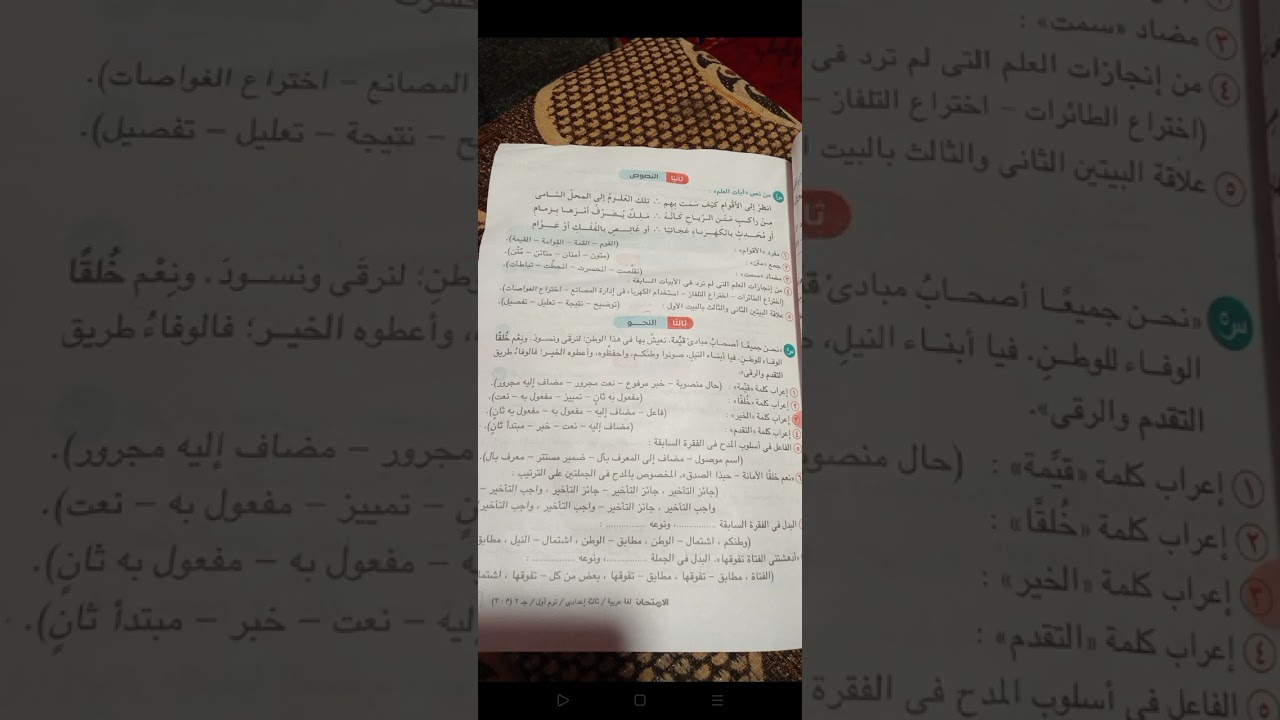 ثانيا النصوص
من نص «آيات العلم» :
انظر إلى الأقوام كيف سمت بهم ∴ تلك العلوم إلى المحل السامى
من راكب متن الرياح كأنه ∴ ملك يصرف أمرها بزمام
أو محدث بالكهرباء عجائبا ∴ أو غائص بالفلك أو عوام
١ مفرد «الأقوام» : (القوم – القمة – القوامة – القيمة).
٢ جمع «متن» : (متون – أمتان – متائن – متن).
٣ مضاد «سمت» : (تقلصت – انحسرت – انحطت – تباطأت).
٤ من إنجازات العلم التى لم ترد فى الأبيات السابقة :
(اختراع الطائرات – اختراع التلفاز – استخدام الكهرباء فى إدارة المصانع – اختراع الغواصات).
٥ علاقة البيتين الثانى والثالث بالبيت الأول : (توضيح – نتيجة – تعليل – تفصيل).
ثالثا النحو
س٥ «نحن جميعًا أصحابُ مبادئ قيِّمة. نعيش بها فى هذا الوطنِ؛ لنرقَى ونسودَ. ونِعْم خُلقًا
الوفاء للوطنِ. فيا أبناء النيلِ، صونوا وطنكم، واحفظوه، وأعطوه الخير؛ فالوفاءُ طريق
التقدم والرقى».
١ إعراب كلمة «قيِّمة» : (حال منصوبة – خبر مرفوع – نعت مجرور – مضاف إليه مجرور).
٢ إعراب كلمة «خُلقًا» : (مفعول به ثانٍ – تمييز – مفعول به – نعت).
٣ إعراب كلمة «الخير» : (فاعل – مضاف إليه – مفعول به – مفعول به ثانٍ).
٤ إعراب كلمة «التقدم» : (مضاف إليه – نعت – خبر – مبتدأ ثانٍ).
٥ الفاعل فى أسلوب المدح فى الفقرة السابقة :
(اسم موصول – مضاف إلى المعرف بأل – ضمير مستتر – معرف بأل).
«نعم خلقًا الأمانة – حبذا الصدق». المخصوص بالمدح فى الجملتين على الترتيب :
(جائز التأخير ، جائز التأخير – جائز التأخير ، واجب التأخير –
واجب التأخير ، جائز التأخير – واجب التأخير ، واجب التأخير)
البدل فى الفقرة السابقة ............... ، ونوعه ............... :
(وطنكم ، اشتمال – الوطن ، مطابق – الوطن ، اشتمال – النيل ، مطابق
«أدهشتنى الفتاة تفوقها». البدل فى الجملة ............... ، ونوعه ............... :
(الفتاة ، مطابق – تفوقها ، مطابق – تفوقها ، بعض من كل – تفوقها ، اشتما
الامتحان لغة عربية / ثالثة إعدادى / ترم أول / جـ ٢ (م : ٣)